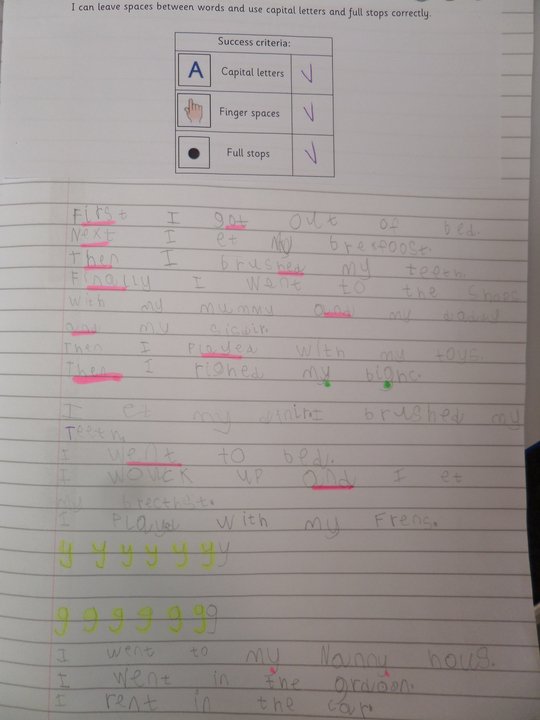 I can leave spaces between words and use capital letters and full stops correctly.
Success criteria:
A Capital letters ✓
Finger spaces ✓
Full stops ✓
First I got out of bed.
Next I et My brecfoost.
Then I brushed my teeth.
Finally I went to the shops
with my mummy and my daddy
and my
Then I Played with my toys.
Then I righed my
I et my brushed my
Teeth.
I went to bed.
I wouck up and I et
my
I Played with my Frens.
y y y y y y y
g g g g g g g
I went to my Nanny hous.
I went in the
I rent in the car.